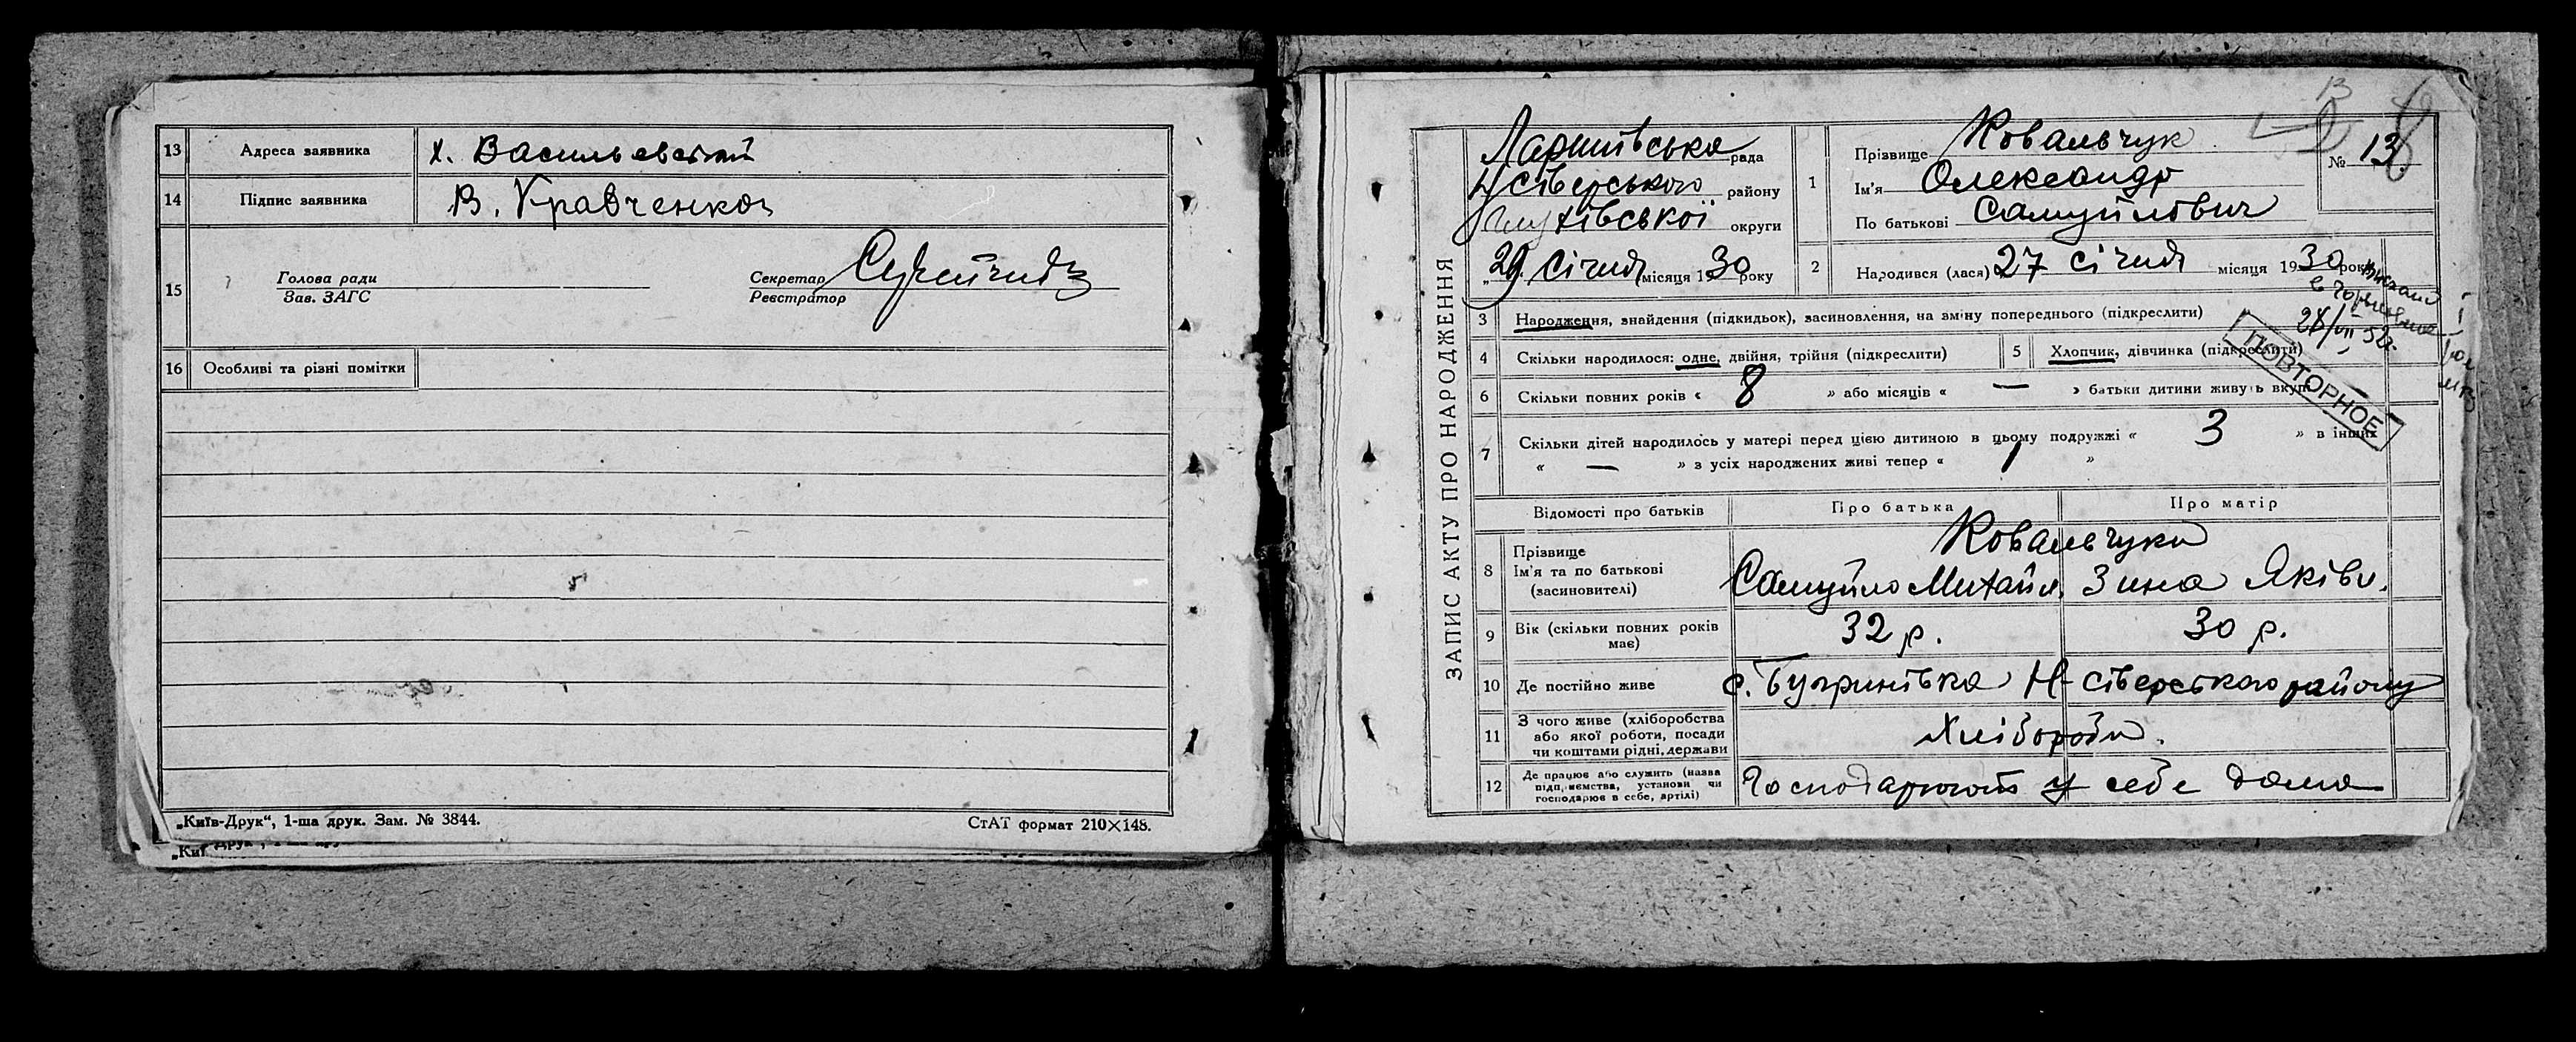 13 Адреса заявника х. Васильевский
14 Підпис заявника В. Кравченко
15 Голова ради
Зав. ЗАГС
Секретар
Реєстратор
16 Особливі та різні помітки
„Київ-Друк“, 1-ша друк. Зам. № 3844.
СтАТ формат 210×148.
ЗАПИС АКТУ ПРО НАРОДЖЕННЯ
рада
Н Сіверського району
Глухівської округи
„29. Січня місяця 1930 року
1 Прізвище Ковальчук
Ім'я Олександр
По батькові Самуйлович
№ 13
2 Народився (лася) 27 Січня місяця 1930 року
28/VII 52г.
ПОВТОРНОЕ
3 Народження, знайдення (підкидьок), засиновлення, на зміну попереднього (підкреслити)
4 Скільки народилося: одне, двійня, трійня (підкреслити)
5 Хлопчик, дівчинка (підкреслити)
6 Скільки повних років « 8 » або місяців « — » батьки дитини живуть вкупі
7 Скільки дітей народилось у матері перед цією дитиною в цьому подружжі « 3 » в інших
« — » з усіх народжених живі тепер « 1 »
Відомості про батьків Про батька Про матір
8 Прізвище
Ім'я та по батькові
(засиновителі)
Ковальчуки
Самуйло Михайл. Зина Яківн.
9 Вік (скільки повних років
має)
32 р. 30 р.
10 Де постійно живе с. Бугринівка Н-Сіверського району
11 З чого живе (хліборобства
або якої роботи, посади
чи коштами рідні, держави
Хлібороби.
12 Де працює або служить (назва
підприємства, установи чи
господарює в себе, артілі)
Господарюють у себе дома